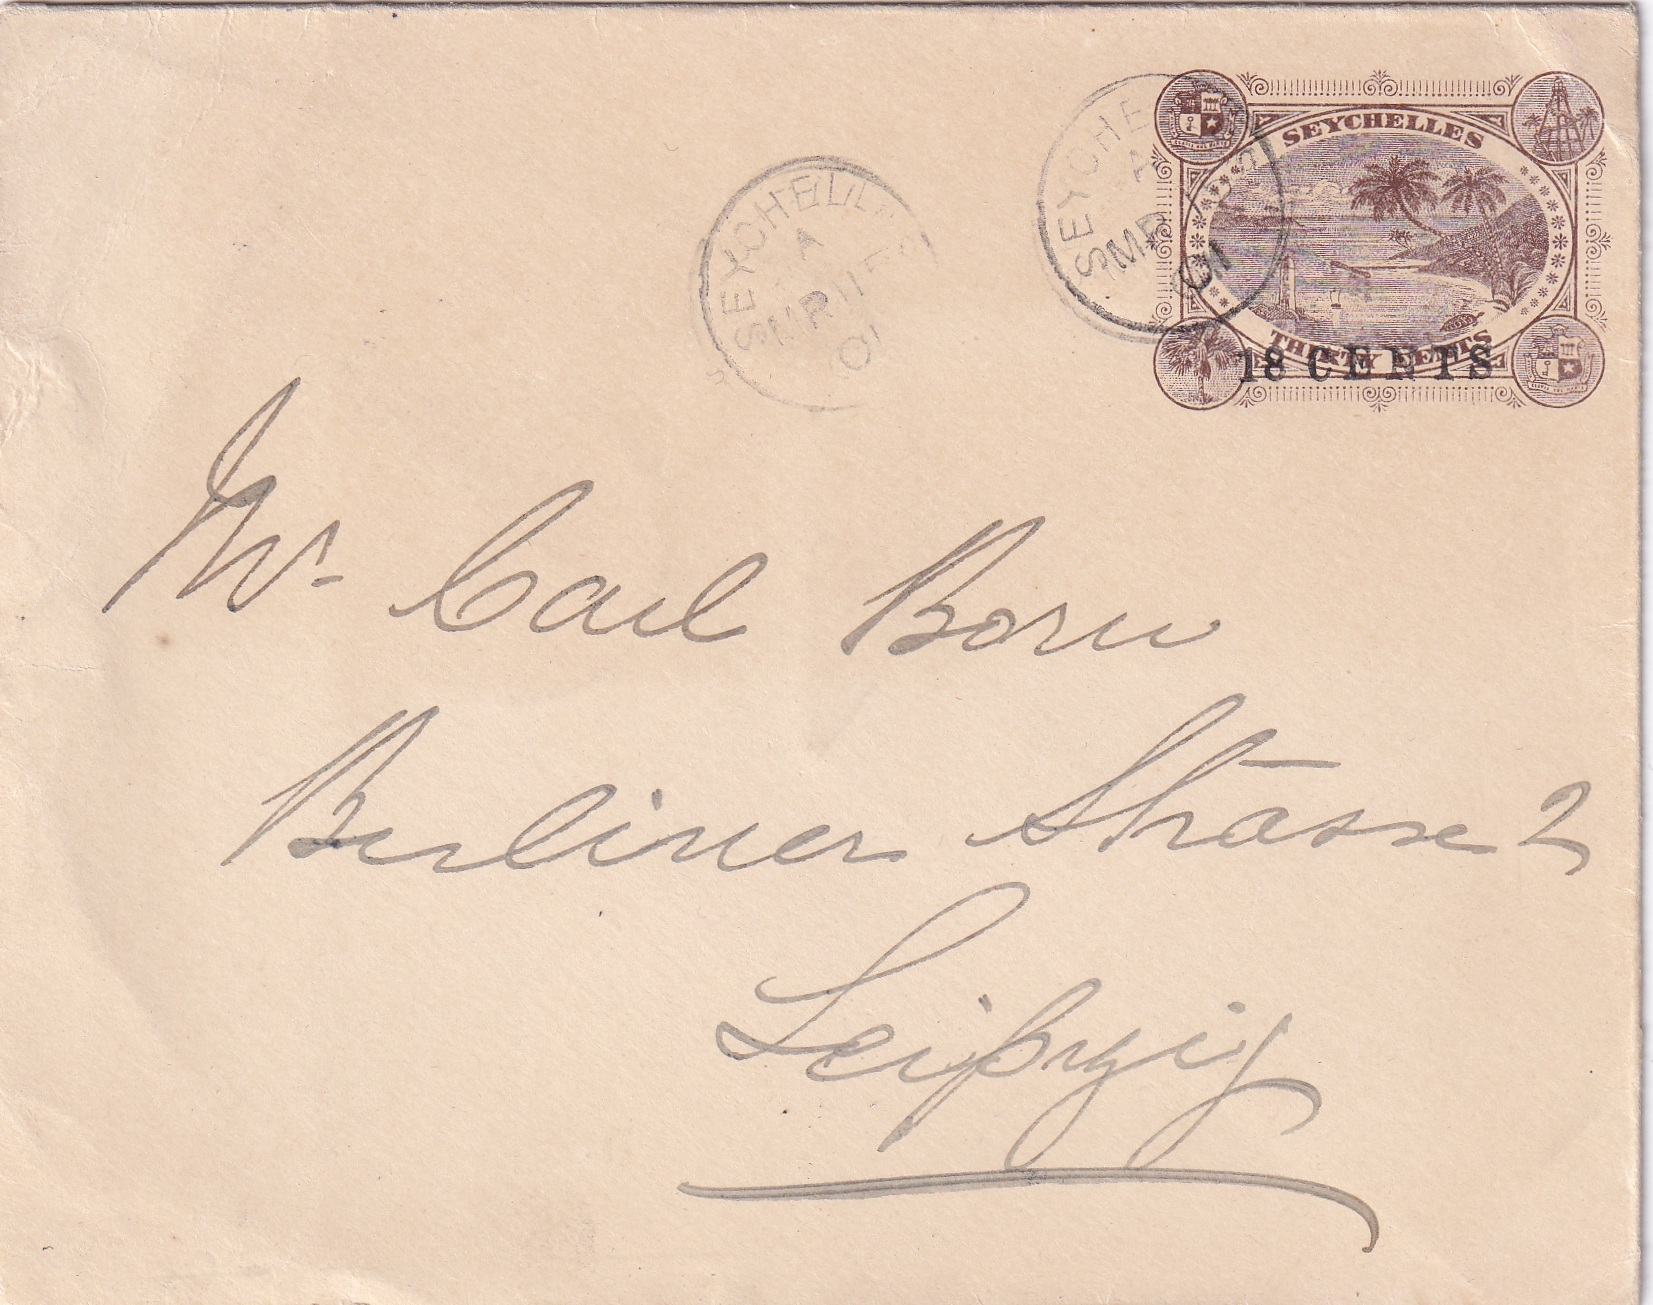 SEYCHELLES
THIRTY CENTS
18 CENTS
SEYCHELLES
A
MR 11
01
SEYCHELLES
A
MR
01
Mr. Carl Born
Berliner Strasse 2
Leipzig